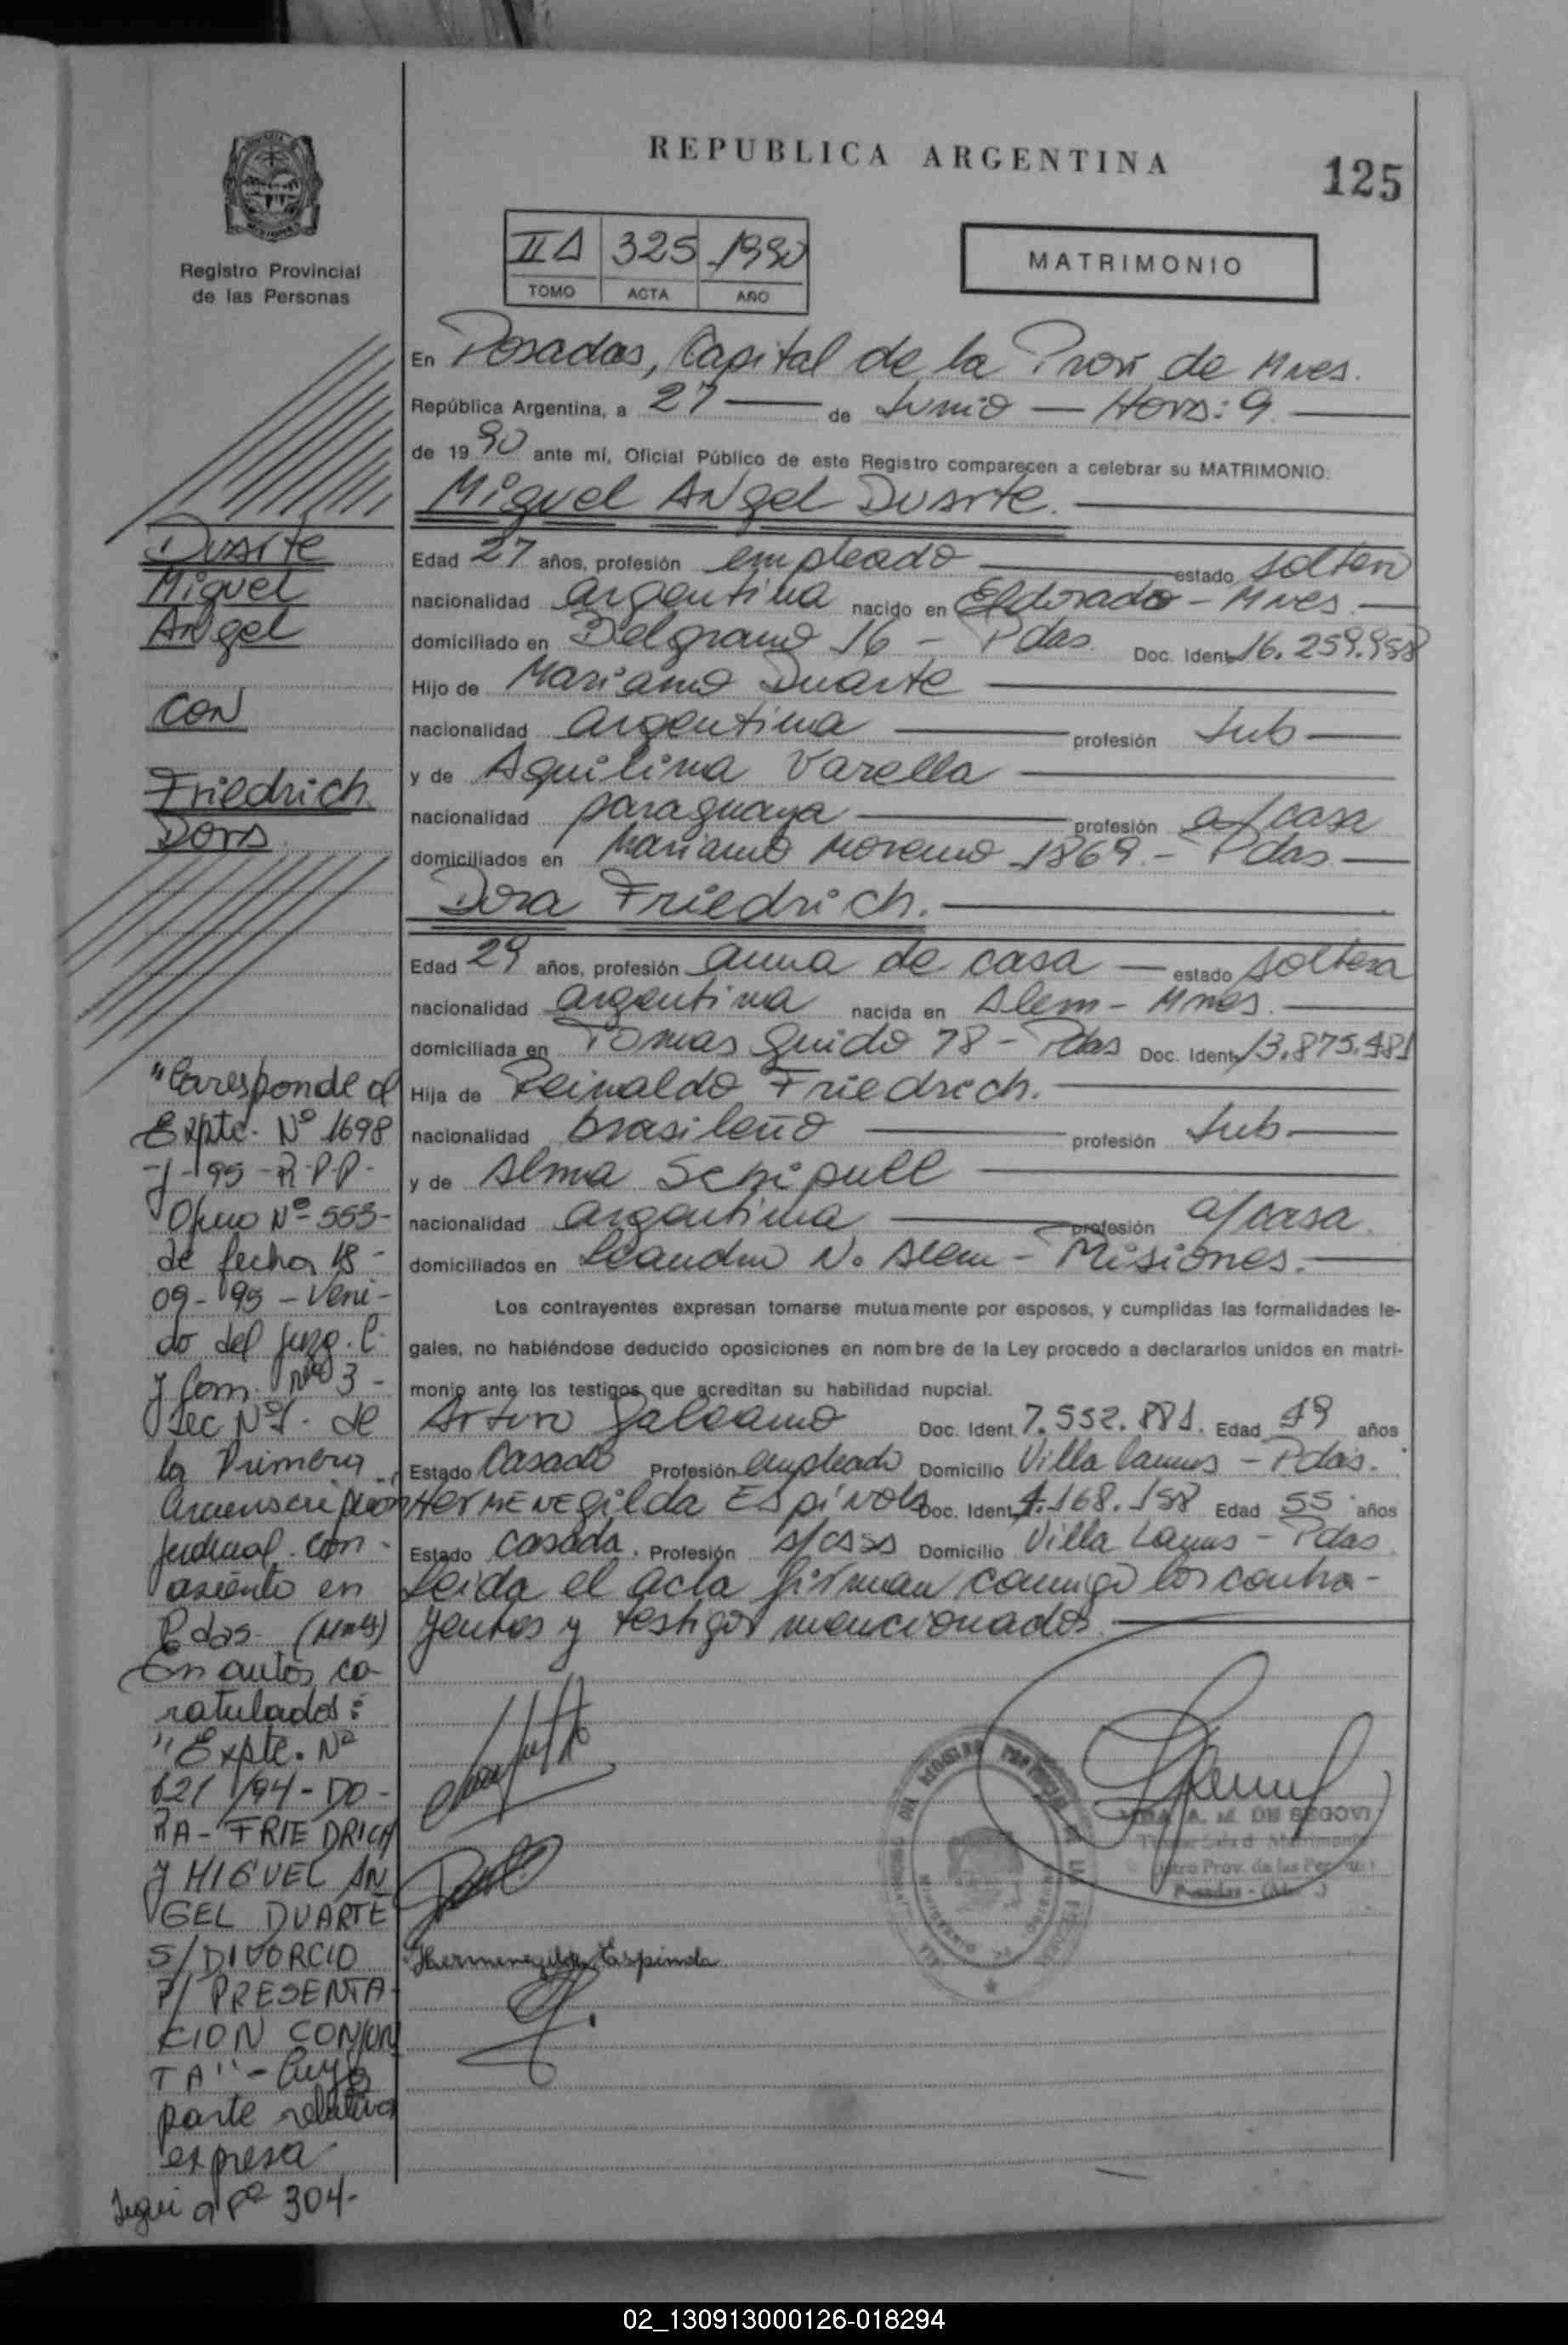 REPUBLICA ARGENTINA
125
Registro Provincial
de las Personas
325 1990
TOMO ACTA AÑO
MATRIMONIO
En Posadas, Capital de la Prov. de Mnes.
República Argentina, a 27 de Junio — Hora: 9.
de 1990 ante mí, Oficial Público de este Registro comparecen a celebrar su MATRIMONIO:
Miguel Angel Duarte.
Edad 27 años, profesión empleado estado soltero
nacionalidad argentina nacido en Eldorado - Mnes.
domiciliado en Belgrano 16 - Pdas. Doc. Ident. 16.259.958
Hijo de Mariano Duarte
nacionalidad argentina profesión Jub
y de Aquilina Varella
nacionalidad paraguaya profesión a/casa
domiciliados en Mariano Moreno 1869.- Pdas.
Dora Friedrich.
Edad 29 años, profesión ama de casa — estado soltera
nacionalidad argentina nacida en Alem - Mnes.
domiciliada en Tomas Guido 78 - Pdas Doc. Ident. 13.875.481
Hija de Reinaldo Friedrich.
nacionalidad brasileño profesión Jub
y de Alma Schipull
nacionalidad argentina profesión a/casa.
domiciliados en Leandro N. Alem - Misiones.
Los contrayentes expresan tomarse mutuamente por esposos, y cumplidas las formalidades le-
gales, no habiéndose deducido oposiciones en nombre de la Ley procedo a declararlos unidos en matri-
monio ante los testigos que acreditan su habilidad nupcial.
Arturo Galeano Doc. Ident. 7.552.881. Edad 49 años
Estado Casado Profesión empleado Domicilio Villa Lanus - Pdas.
HERMENEgilda Espínola Doc. Ident. 4.168.158 Edad 55 años
Estado Casada. Profesión a/casa Domicilio Villa Lanus - Pdas
Leida el acta firman conmigo los contra-
yentes y testigos mencionados.
Hermenegilda Espinola
A. M. DE SEGOVI
Prov. de las
Posadas
Duarte
Miguel
Angel
CON
Friedrich
Dora
"Corresponde al
Expte. Nº 1698
-J-95-R.P.P.
Oficio Nº 553-
de fecha 18-
09-95 - Veni-
do del Juzg. C.
y Com. Nº 3 -
Sec Nº 1- de
la Primera
Circunscripción
Judicial con
asiento en
Pdas. (Mnes)
En autos ca-
ratulados:
"Expte. Nº
621/94 - DO-
RA - FRIEDRICH
y MIGUEL AN
GEL DUARTE
S/DIVORCIO
P/ PRESENTA-
CION CONJUN
TA" - Cuya
parte relativa
expresa
Sigue a Fº 304-
02_130913000126-018294